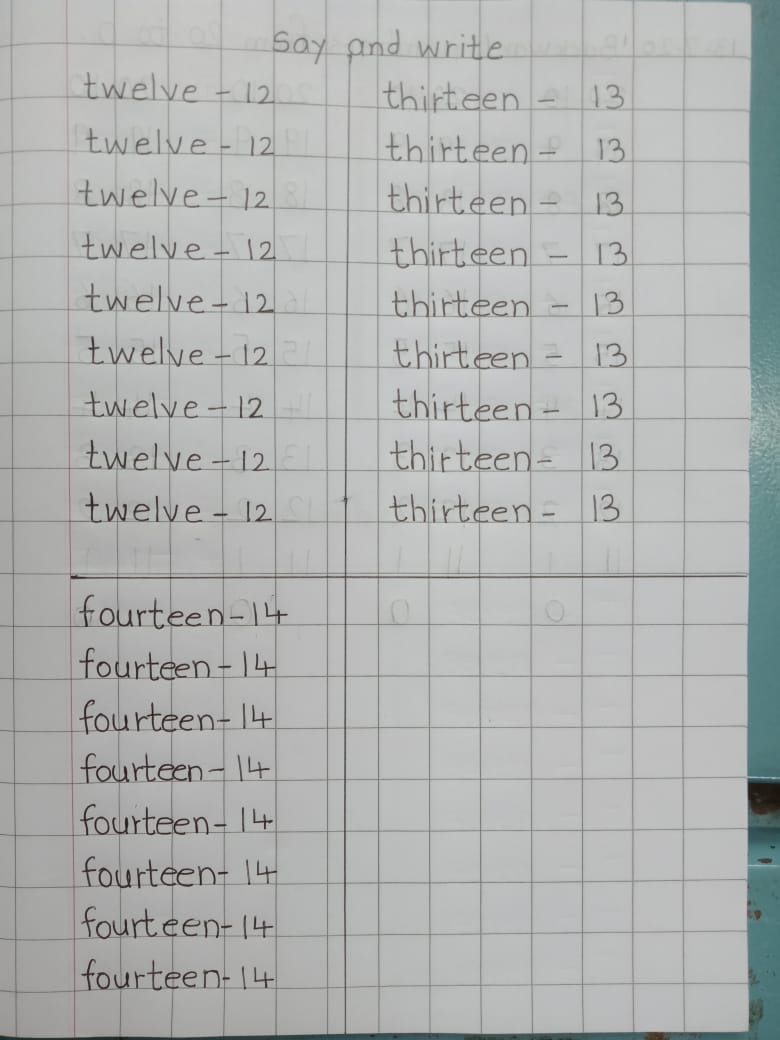 Say and write
twelve - 12 thirteen - 13
twelve - 12 thirteen - 13
twelve - 12 thirteen - 13
twelve - 12 thirteen - 13
twelve - 12 thirteen - 13
twelve - 12 thirteen - 13
twelve - 12 thirteen - 13
twelve - 12 thirteen - 13
twelve - 12 thirteen - 13
fourteen - 14
fourteen - 14
fourteen - 14
fourteen - 14
fourteen - 14
fourteen - 14
fourteen - 14
fourteen - 14